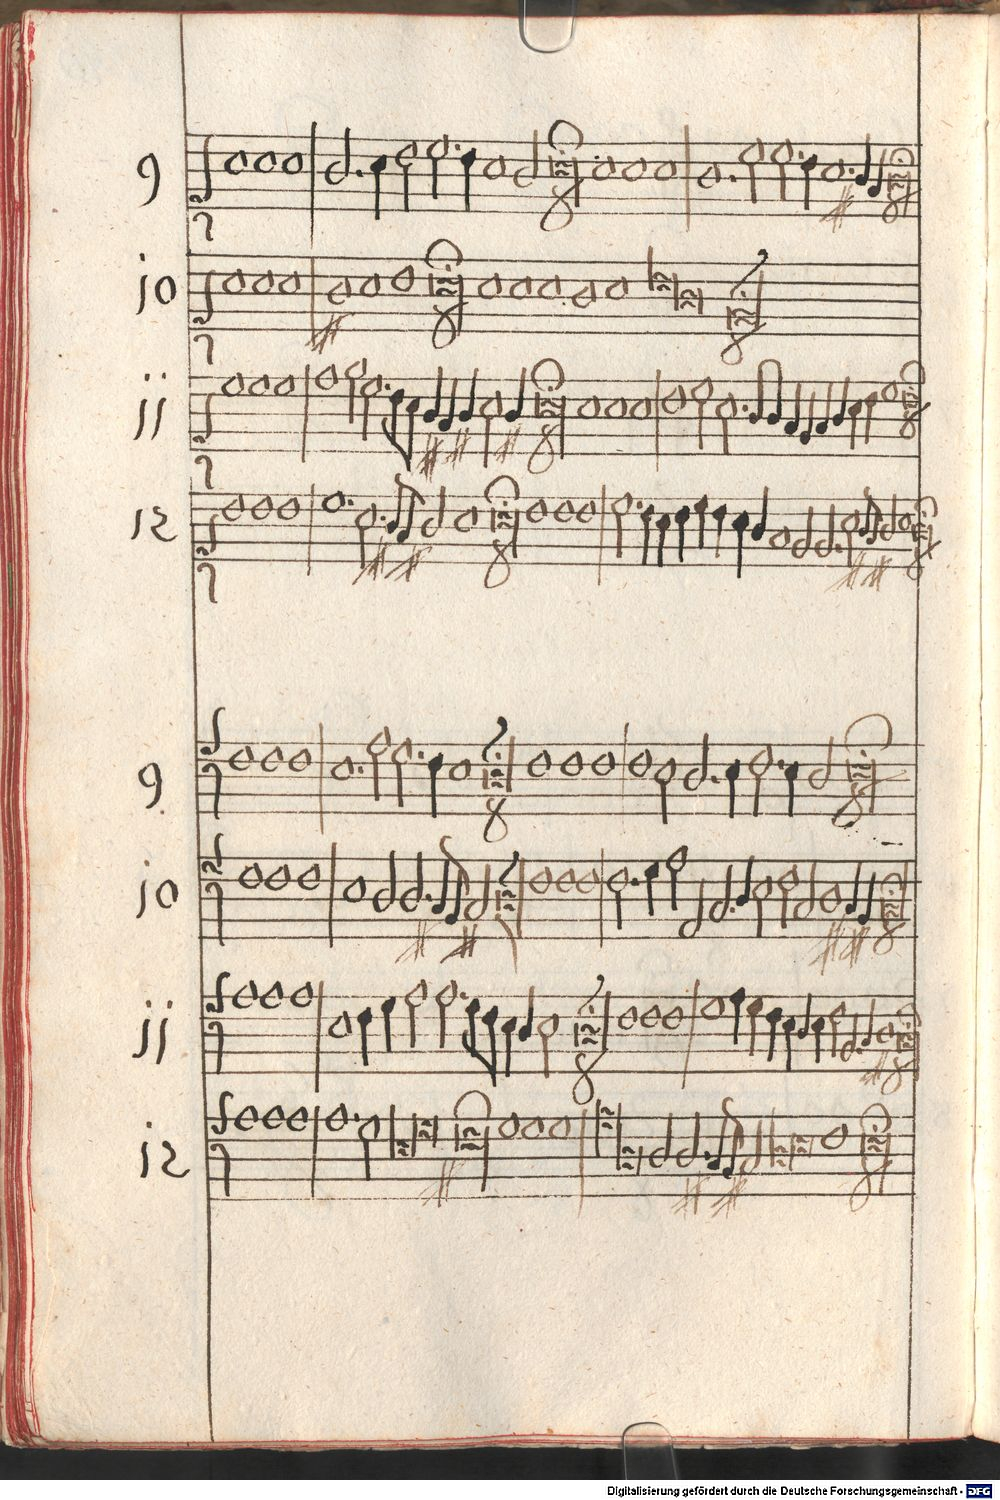 9
jo
jj
12
9
jo
jj
12
Digitalisierung gefördert durch die Deutsche Forschungsgemeinschaft - DFG